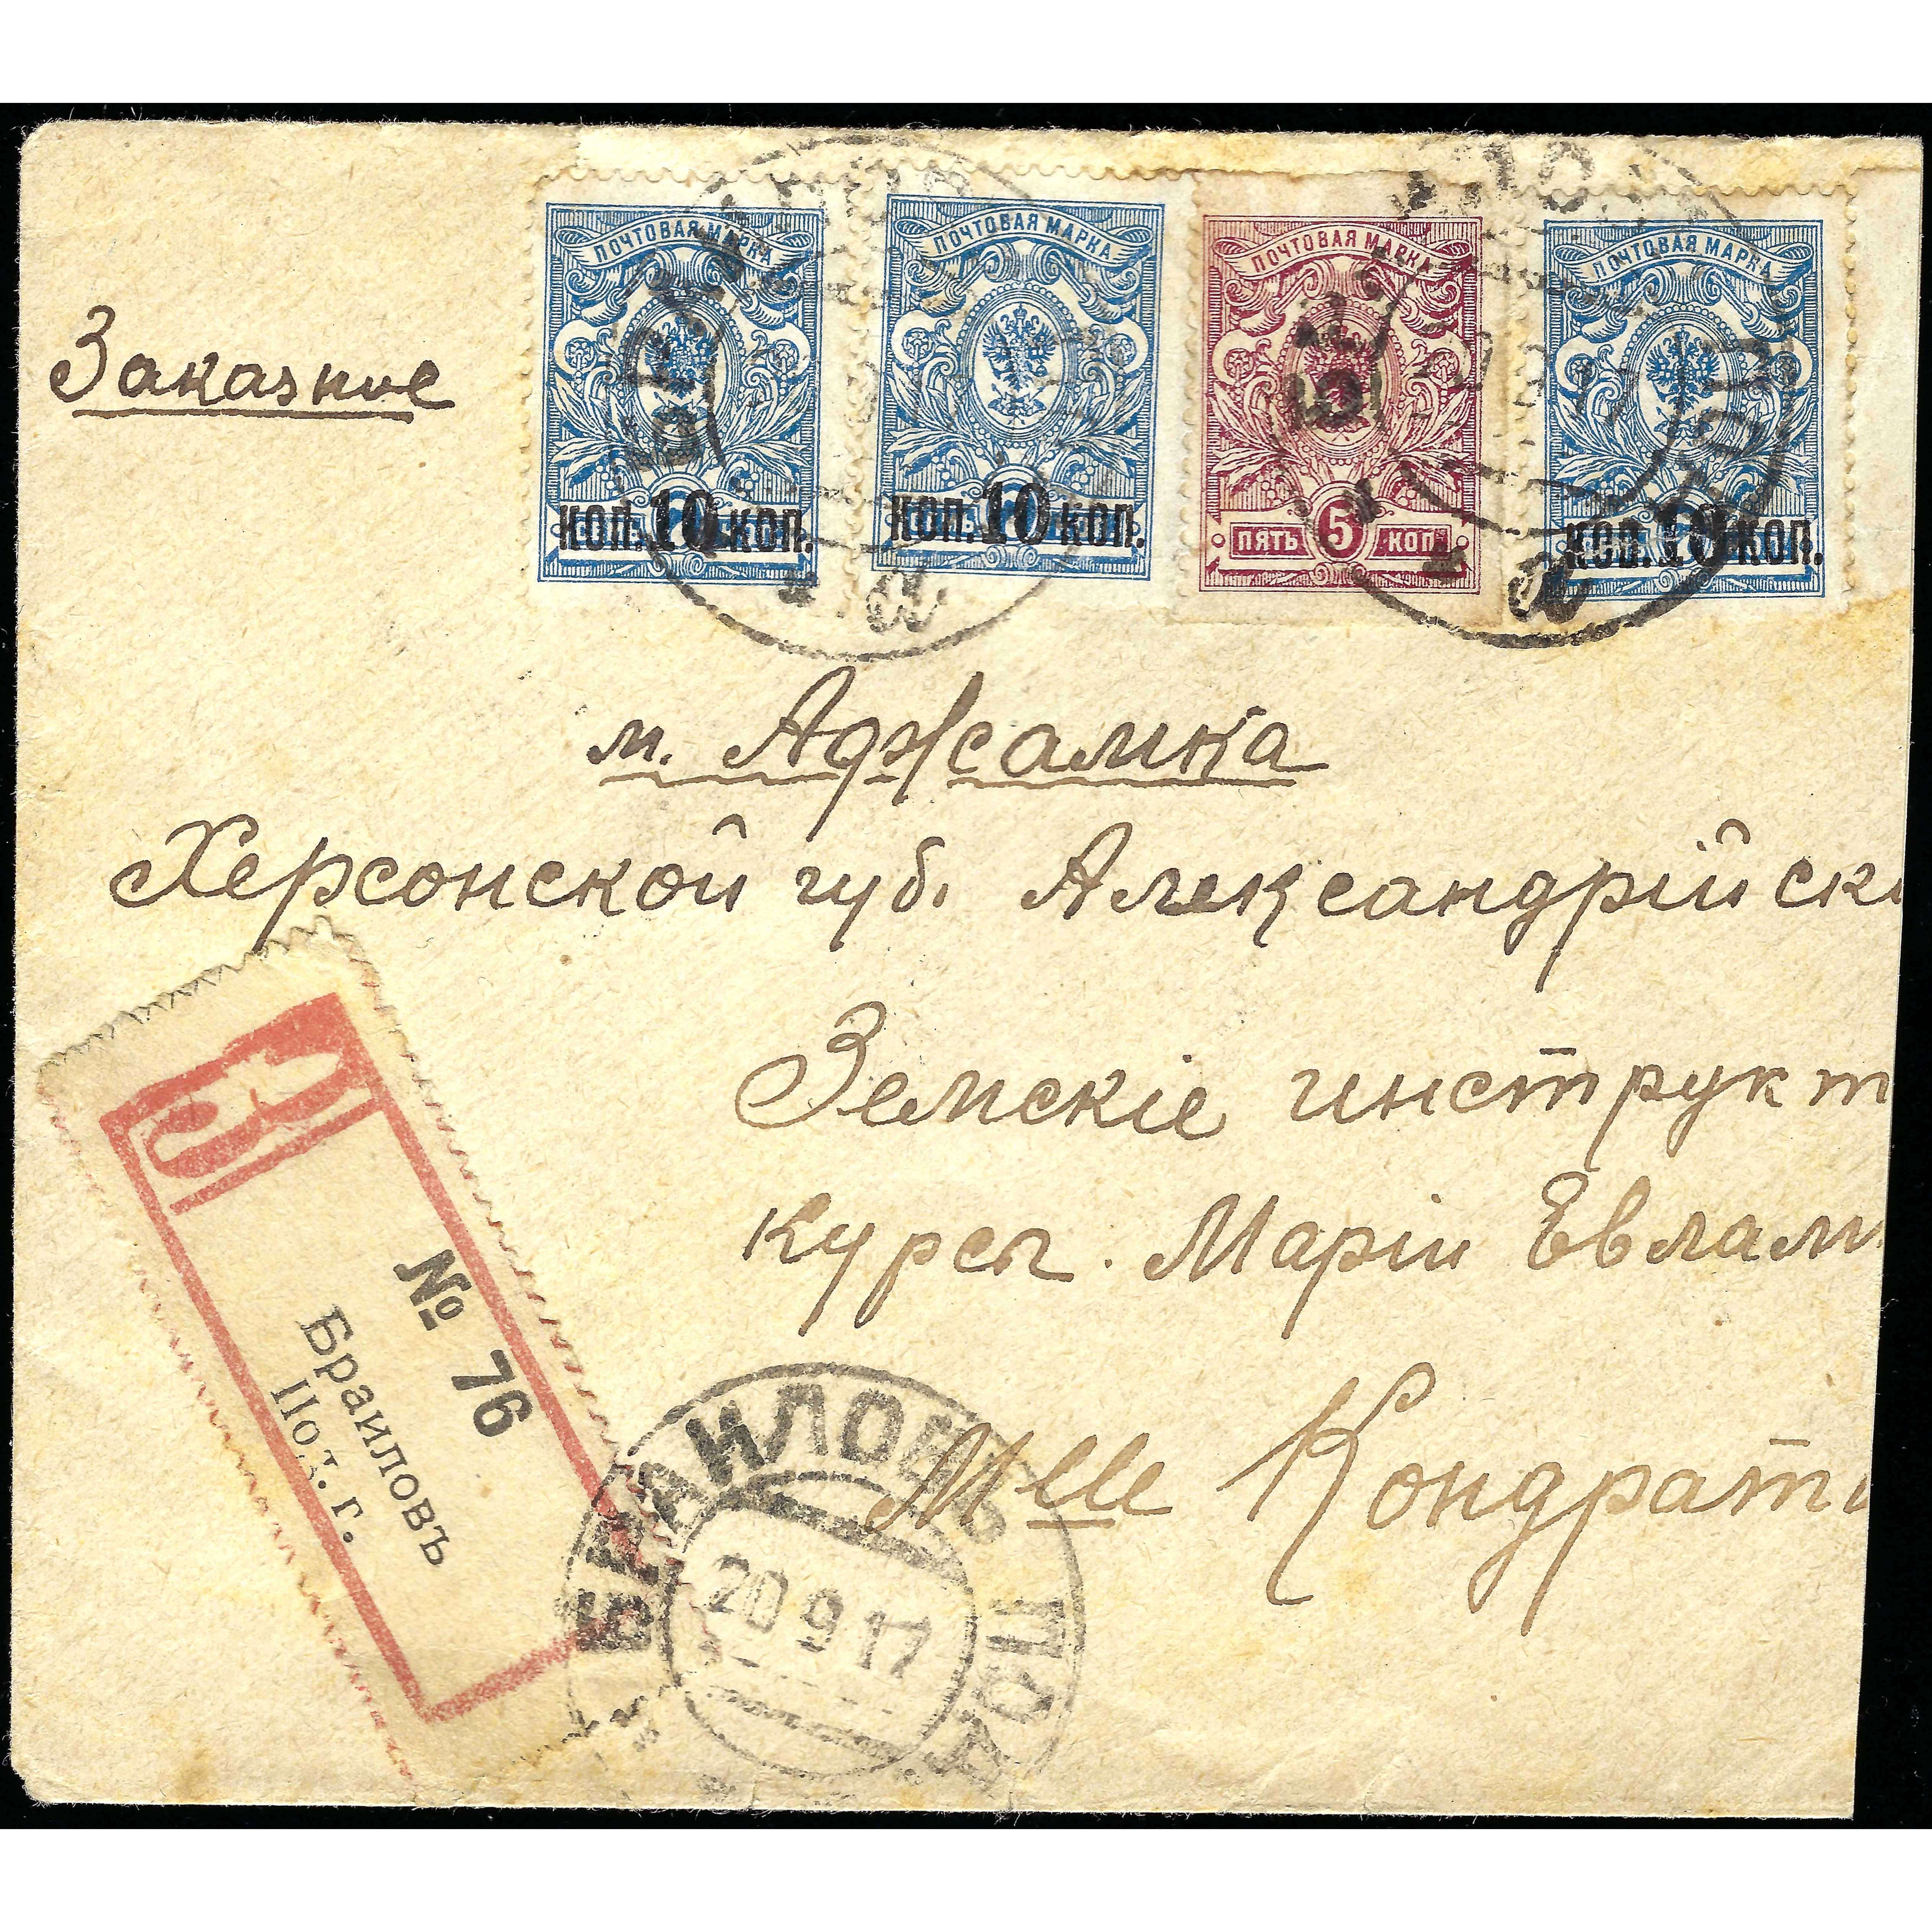 ПОЧТОВАЯ МАРКА ПОЧТОВАЯ МАРКА ПОЧТОВАЯ МАРКА ПОЧТОВАЯ МАРКА
КОП. 10 КОП. КОП. 10 КОП. ПЯТЬ 5 КОП КОП. 10 КОП.
а а
Заказное
м. Аджамка
Херсонской губ. Александрійск
Земскіе инструкт
курсы. Маріи Евлам
Mlle Кондрат
№ 76
Браиловъ
Под. г.
БРАИЛОВЪ ПОД.
20 9 17